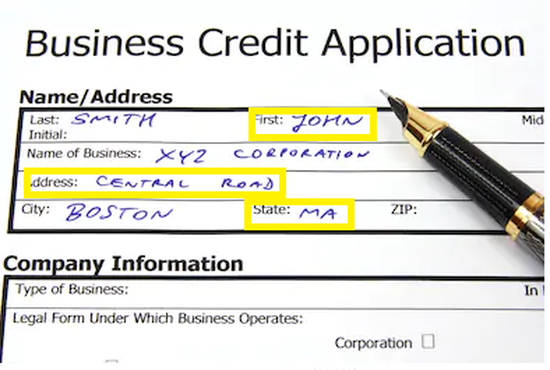 Business Credit Application
Name/Address
Last: SMITH First: JOHN
Initial:
Name of Business: XYZ CORPORATION
ddress: CENTRAL ROAD
City: BOSTON State: MA ZIP:
Company Information
Type of Business: In
Legal Form Under Which Business Operates:
Corporation